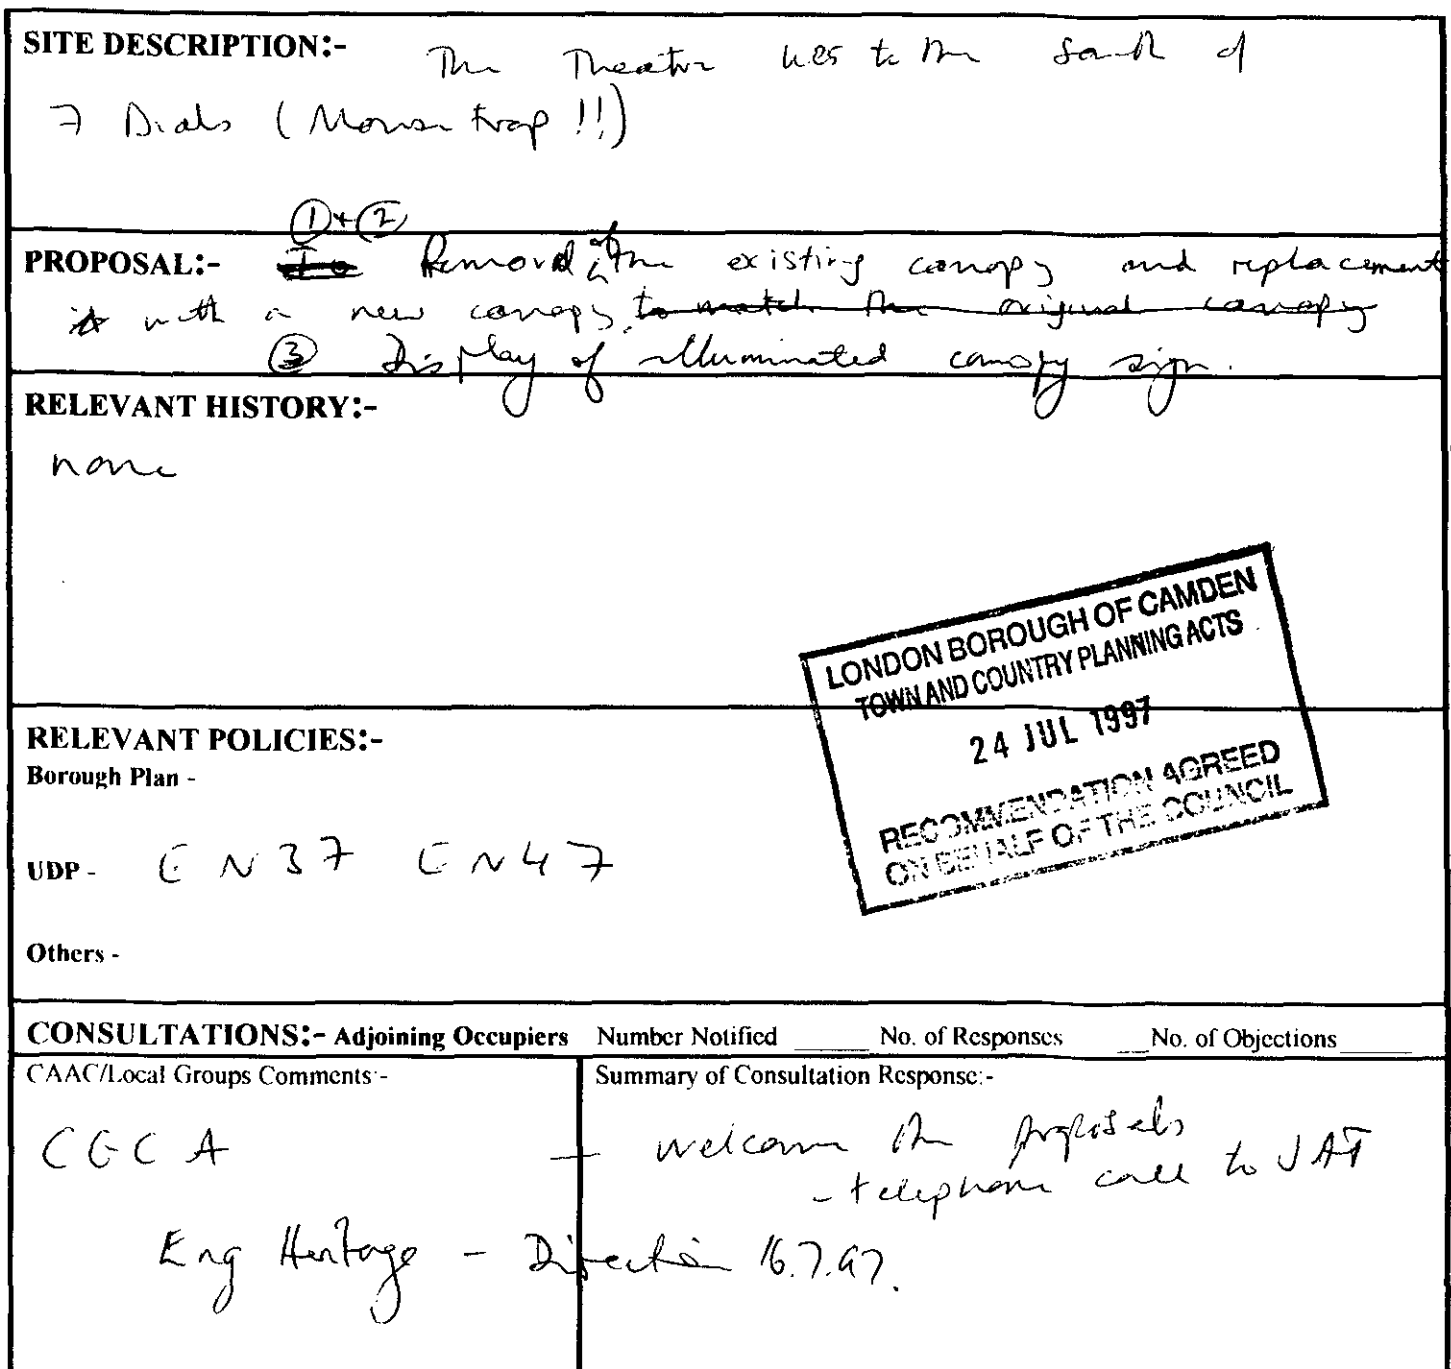 SITE DESCRIPTION:- The Theatre lies to the South of
7 Dials (Mousetrap !!)
① + ②
PROPOSAL:- To Removal of the existing canopy and replacement
with a new canopy. to match the original canopy
③ Display of illuminated canopy sign.
RELEVANT HISTORY:-
none
LONDON BOROUGH OF CAMDEN
TOWN AND COUNTRY PLANNING ACTS
24 JUL 1997
RECOMMENDATION AGREED
ON BEHALF OF THE COUNCIL
RELEVANT POLICIES:-
Borough Plan -
UDP - EN37 EN47
Others -
CONSULTATIONS:- Adjoining Occupiers Number Notified _____ No. of Responses __ No. of Objections _____
CAAC/Local Groups Comments:-
Summary of Consultation Response:-
CGCA — welcome the proposals
- telephone call to JAT
Eng Heritage - Direction 16.7.97.